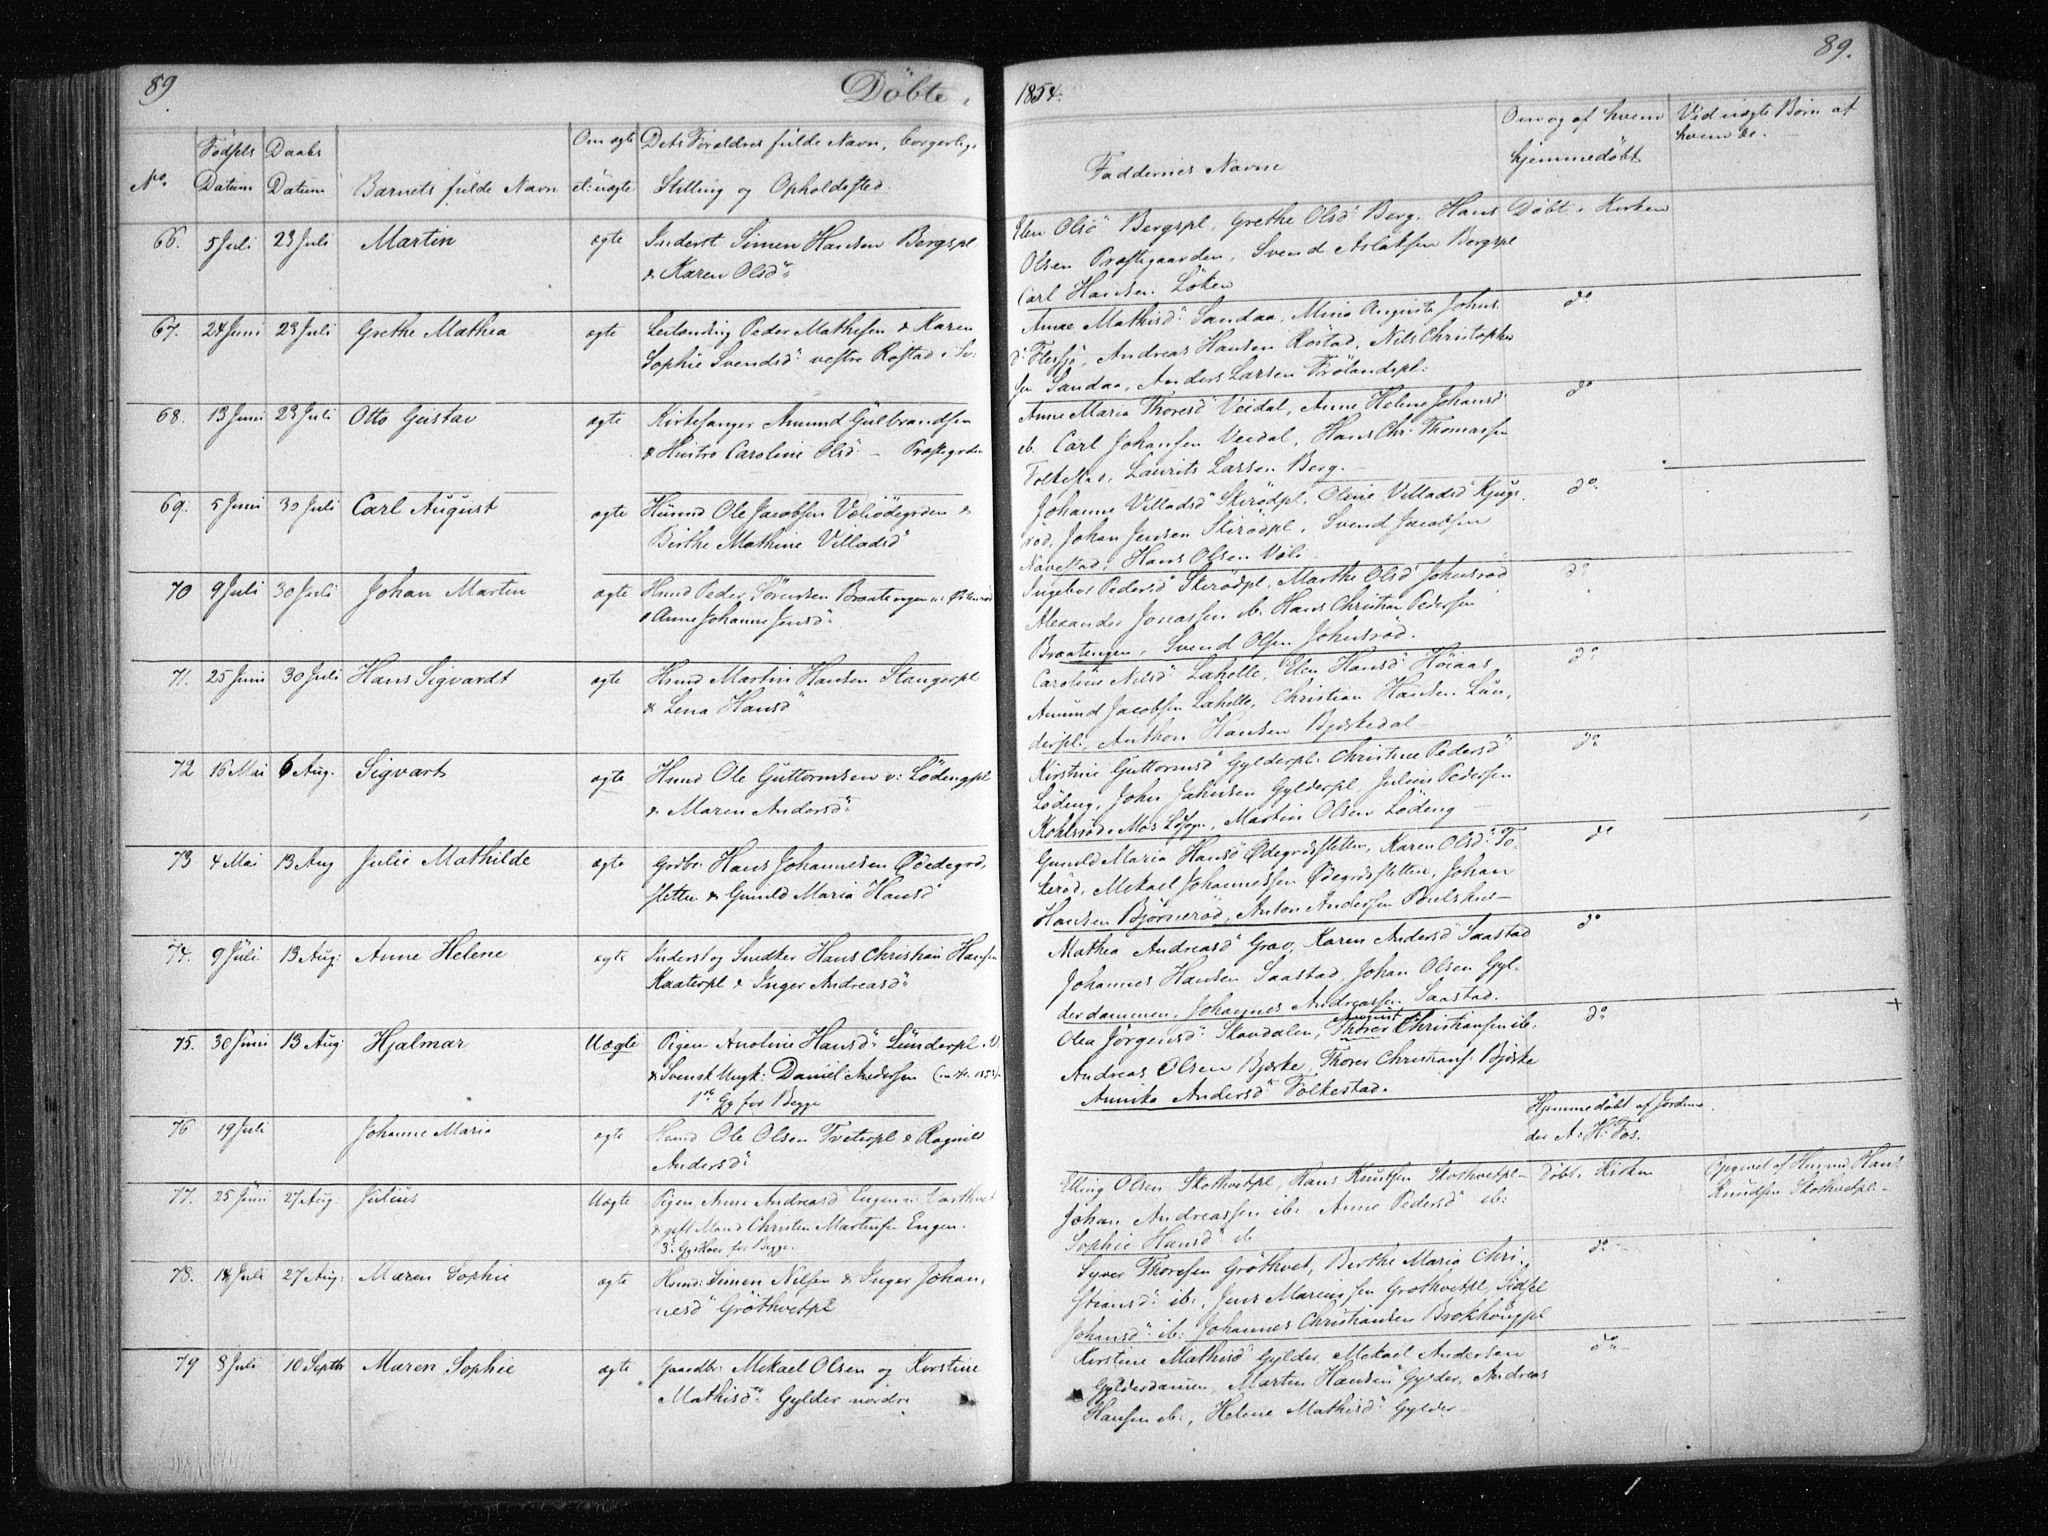 89 Döbte 1854. 89.
No. Födsels Datum Daabs Datum Barnets fulde Navn Om ægte el: uægte Dets Foraldres fulde Navn, borgerlige Stilling og Opholdssted.
Faddernes Navne Om og af hvem hjemmedöbt Ved uægte Börn af hvem
66. 5 Juli 23 Juli Martin ægte Inderst Simen Hansen Bergspl
& Karen Olsd:
Elen Olsd Bergspl, Grethe Olsd Berg, Hans Döbt i Kirken
Olsen Præstegaarden, Svend Aslaksen Bergspl
Carl Hansen Löken
67. 24 Juni 23 Juli Grethe Mathea ægte Leilænding Peder Mathesen & Karen
Sophie Svendsd: vestre Rostad i
Anne Mathisd: Sandaa, Mina Augusta Johns do
d: Flessjö, Andreas Hansen Röstad, Nils Christophe
sen Sandaa, Anders Larsen Frölandspl:
68. 13 Juni 23 Juli Otto Gustav ægte Kirkesanger Amund Gulbrandsen
& Hustro Caroline Olsd – Præstegrden
Anne Maria Thoresd Veidal, Anne Helene Johansd do
ib. Carl Johansen Veidal, Hans Chr. Thomassen
Folkestad, Laurits Larsen Berg.
69. 5 Juni 30 Juli Carl August ægte Husmd Ole Jacobsen Væliödegrden &
Birthe Mathine Villadsd
Johanne Villadsd Skirödpl, Oline Villadsd Kjugs do
röd, Johan Jensen Skirödpl, Svend Jacobsen
Navestad, Hans Olsen Væli
70 9 Juli 30 Juli Johan Martin ægte Husmd Peder Sörensen Braatengen u:
& Anne Johanne Jensd:
Ingebor Pedersd Skirödpl, Marthe Olsd Johnsröd do
Alexander Jonassen ib: Hans Christian Pedersen
Braatengen, Svend Olsen Johnsröd.
71. 25 Juni 30 Juli Hans Sigvardt ægte Husmd Martin Hansen Stangerpl
& Lena Hansd
Caroline Nilsd Lahelle, Elen Hansd Höiaas do
Amund Jacobsen Lahelle, Christian Hansen Lun,
derpl:, Anthon Hansen Bjærkedal
72 16 Mai 6 Aug. Sigvart ægte Husmd Ole Guttormsen v: Lödengpl
& Maren Andersd:
Kirstine Guttormsd Gylderpl. Christine Pedersd do
Lödeng, John Jahnsen Gylderpl Julius Pedersen
Kohlsröd Mos L:Sogn, Martin Olsen Lödeng
73 4 Mai 13 Aug Julie Mathilde ægte Grdbr Hans Johannesen Ödedegrd,
sletten & Gunild Maria Hansd
Gunild Maria Hansd Ödegrdsletten, Karen Olsd: To do
keröd, Mikael Johannessen Ödegrdsletten, Johan
Hansen Björneröd, Anton Andersen
74. 9 Juli 13 Aug: Anne Helene ægte Inderst og Snedker Hans Christian Hansen
Kaaterpl & Inger Andreasd:
Mathea Andreasd Grav, Karen Andersd Saastad do
Johannes Hansen Saastad, Johan Olsen Gyl.
derdammen, Johannes Andreassen Saastad.
75. 30 Juni 13 Aug: Hjalmar Uægte Pigen Anoline Hansd: Lunderpl. V.
& Svensk Ungk: Daniel Andersen
1ste Gg for Begge
Olea Jörgensd: Skovdalen, August Thorer Christiansen ib. do +
Andreas Olsen Bjerke, Thorer Christians: Bjerke
Annika Andersd Folkestad.
76 19 Juli Johanne Maria ægte Husmd Ole Olsen Tveterpl & Ragnild
Andersd:
Hjemmedöbt af Jordmo
der A: H: Fos.
77. 25 Juni 27 Aug: Julius Uægte Pigen Anne Andreasd Engen u: Vasthvet
& gift Mand Christen Martinsen Engen.
3die for Begge.
Elling Olsen Skothvetpl, Hans Knutsen Skothvetpl– Döbt i Kirken Opgivet af Husmd Hans
Johan Andreassen ib: Anne Pedersd ib: Knudsen Skothvetpl.
Sophie Hansd: ib
78. 18 Juli 27 Aug: Maren Sophie ægte Husmd: Simen Nilsen & Inger Johan,
nesd Gröthvetpl
Syver Thoresen Gröthvet, Berthe Maria Chri, do
stiansd: ib:, Jens Mariussen Grothvetpl, Sidsel
Johansd: ib: Johannes Christiansen Brokhougpl
79 8 Juli 10 Septb Maren Sophie ægte Gaardbr: Mikael Olsen og Kirstine
Mathisd: Gylder nordre
Kirstine Mathisd Gylder, Mikael Andersen do
Gylderdamen, Martin Hansen Gylder, Andreas
Hansen ib:, Helene Mathisd: Gylder